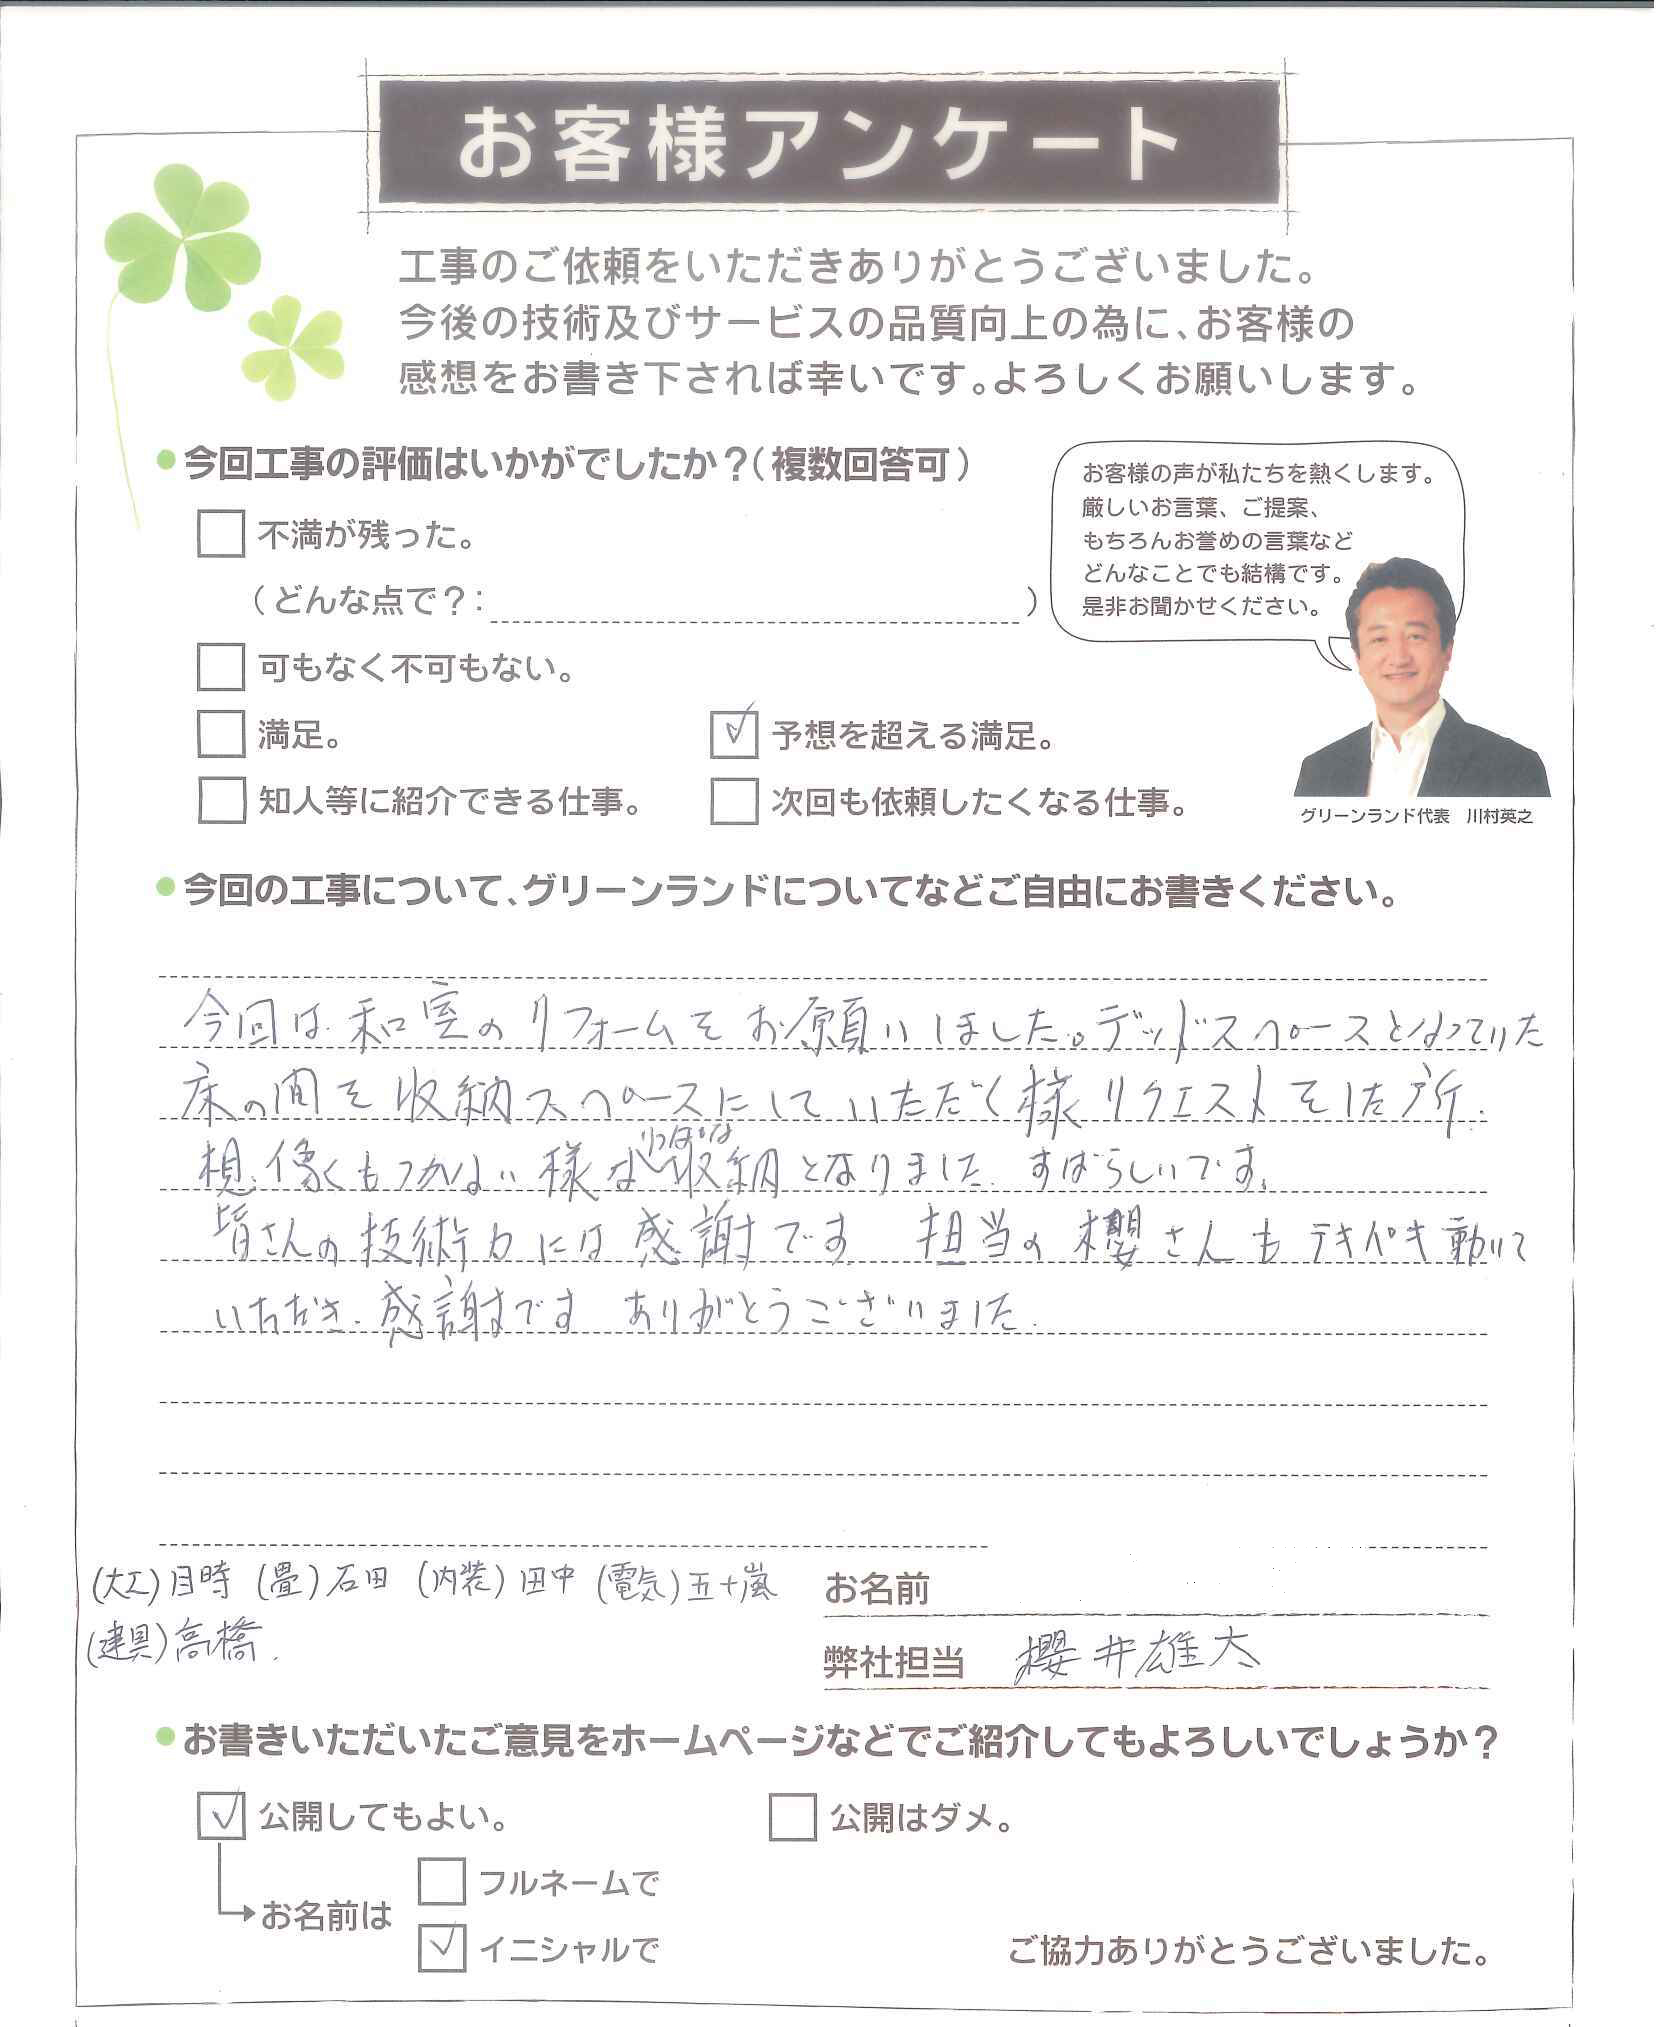 お客様アンケート
工事のご依頼をいただきありがとうございました。
今後の技術及びサービスの品質向上の為に、お客様の
感想をお書き下されば幸いです。よろしくお願いします。
●今回工事の評価はいかがでしたか?(複数回答可)
不満が残った。
(どんな点で?: )
可もなく不可もない。
満足。
予想を超える満足。
知人等に紹介できる仕事。
次回も依頼したくなる仕事。
お客様の声が私たちを熱くします。
厳しいお言葉、ご提案、
もちろんお誉めの言葉など
どんなことでも結構です。
是非お聞かせください。
グリーンランド代表 川村英之
●今回の工事について、グリーンランドについてなどご自由にお書きください。
今回は和室のリフォームをお願いしました。デッドスペースとなっていた
床の間を収納スペースにしていただく様リクエストをした所
想像もつかない様なりっぱな収納となりました。すばらしいです。
皆さんの技術力には感謝です。担当の櫻さんもテキパキ動いて
いただき、感謝です ありがとうございました。
(大工)目時 (畳)石田 (内装)田中 (電気)五十嵐
(建具)高橋.
お名前
弊社担当 櫻井雄太
●お書きいただいたご意見をホームページなどでご紹介してもよろしいでしょうか?
公開してもよい。
公開はダメ。
お名前は
フルネームで
イニシャルで
ご協力ありがとうございました。